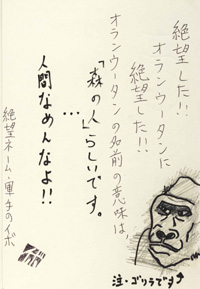 絶望した!!
オランウータンに
絶望した!!
オランウータンの名前の意味は
「森の人」らしいです。
…
人間なめんなよ!!
絶望ネーム・軍手のイボ
注・ゴリラです